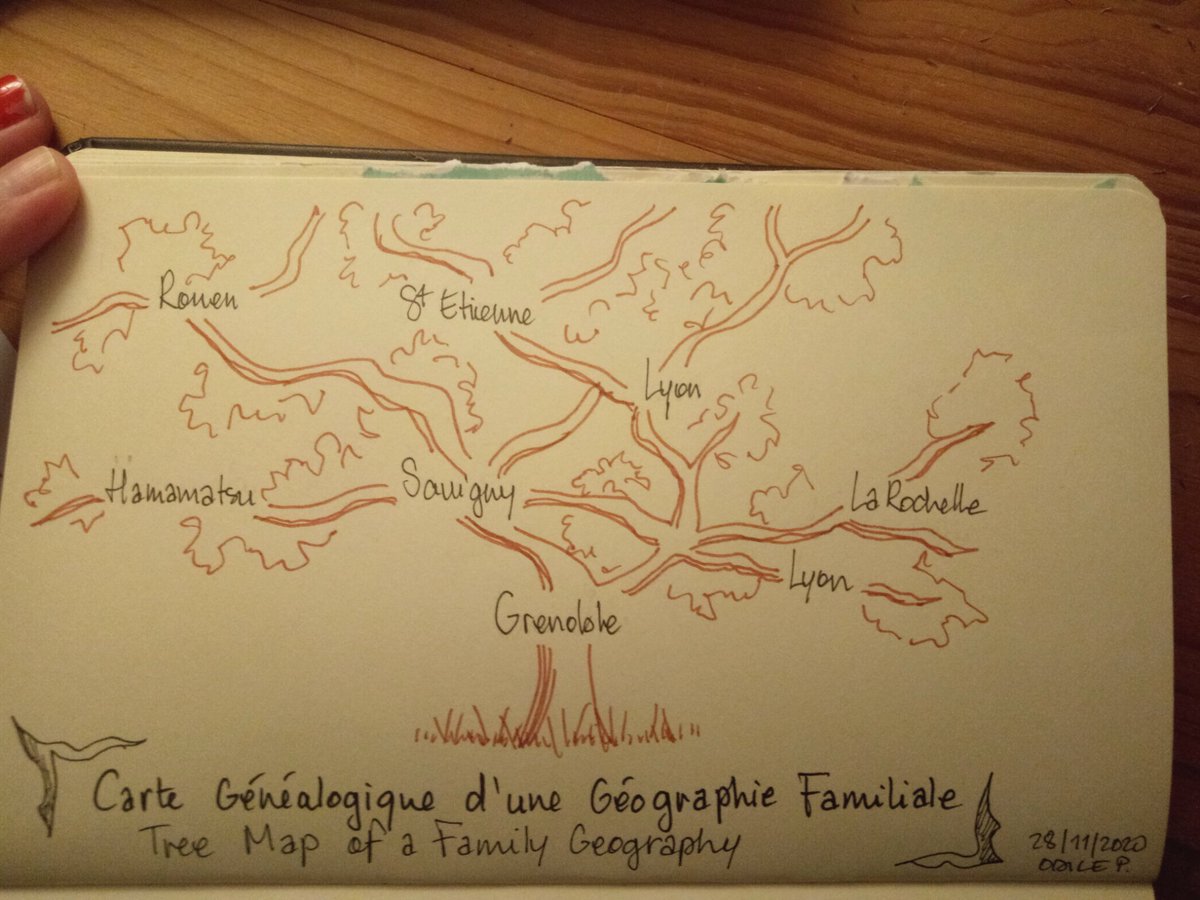 Rouen
St Etienne
Lyon
Hamamatsu
Savigny
La Rochelle
Lyon
Grenoble
Carte Généalogique d'une Géographie Familiale
Tree Map of a Family Geography
28/11/2020
ODILE P.